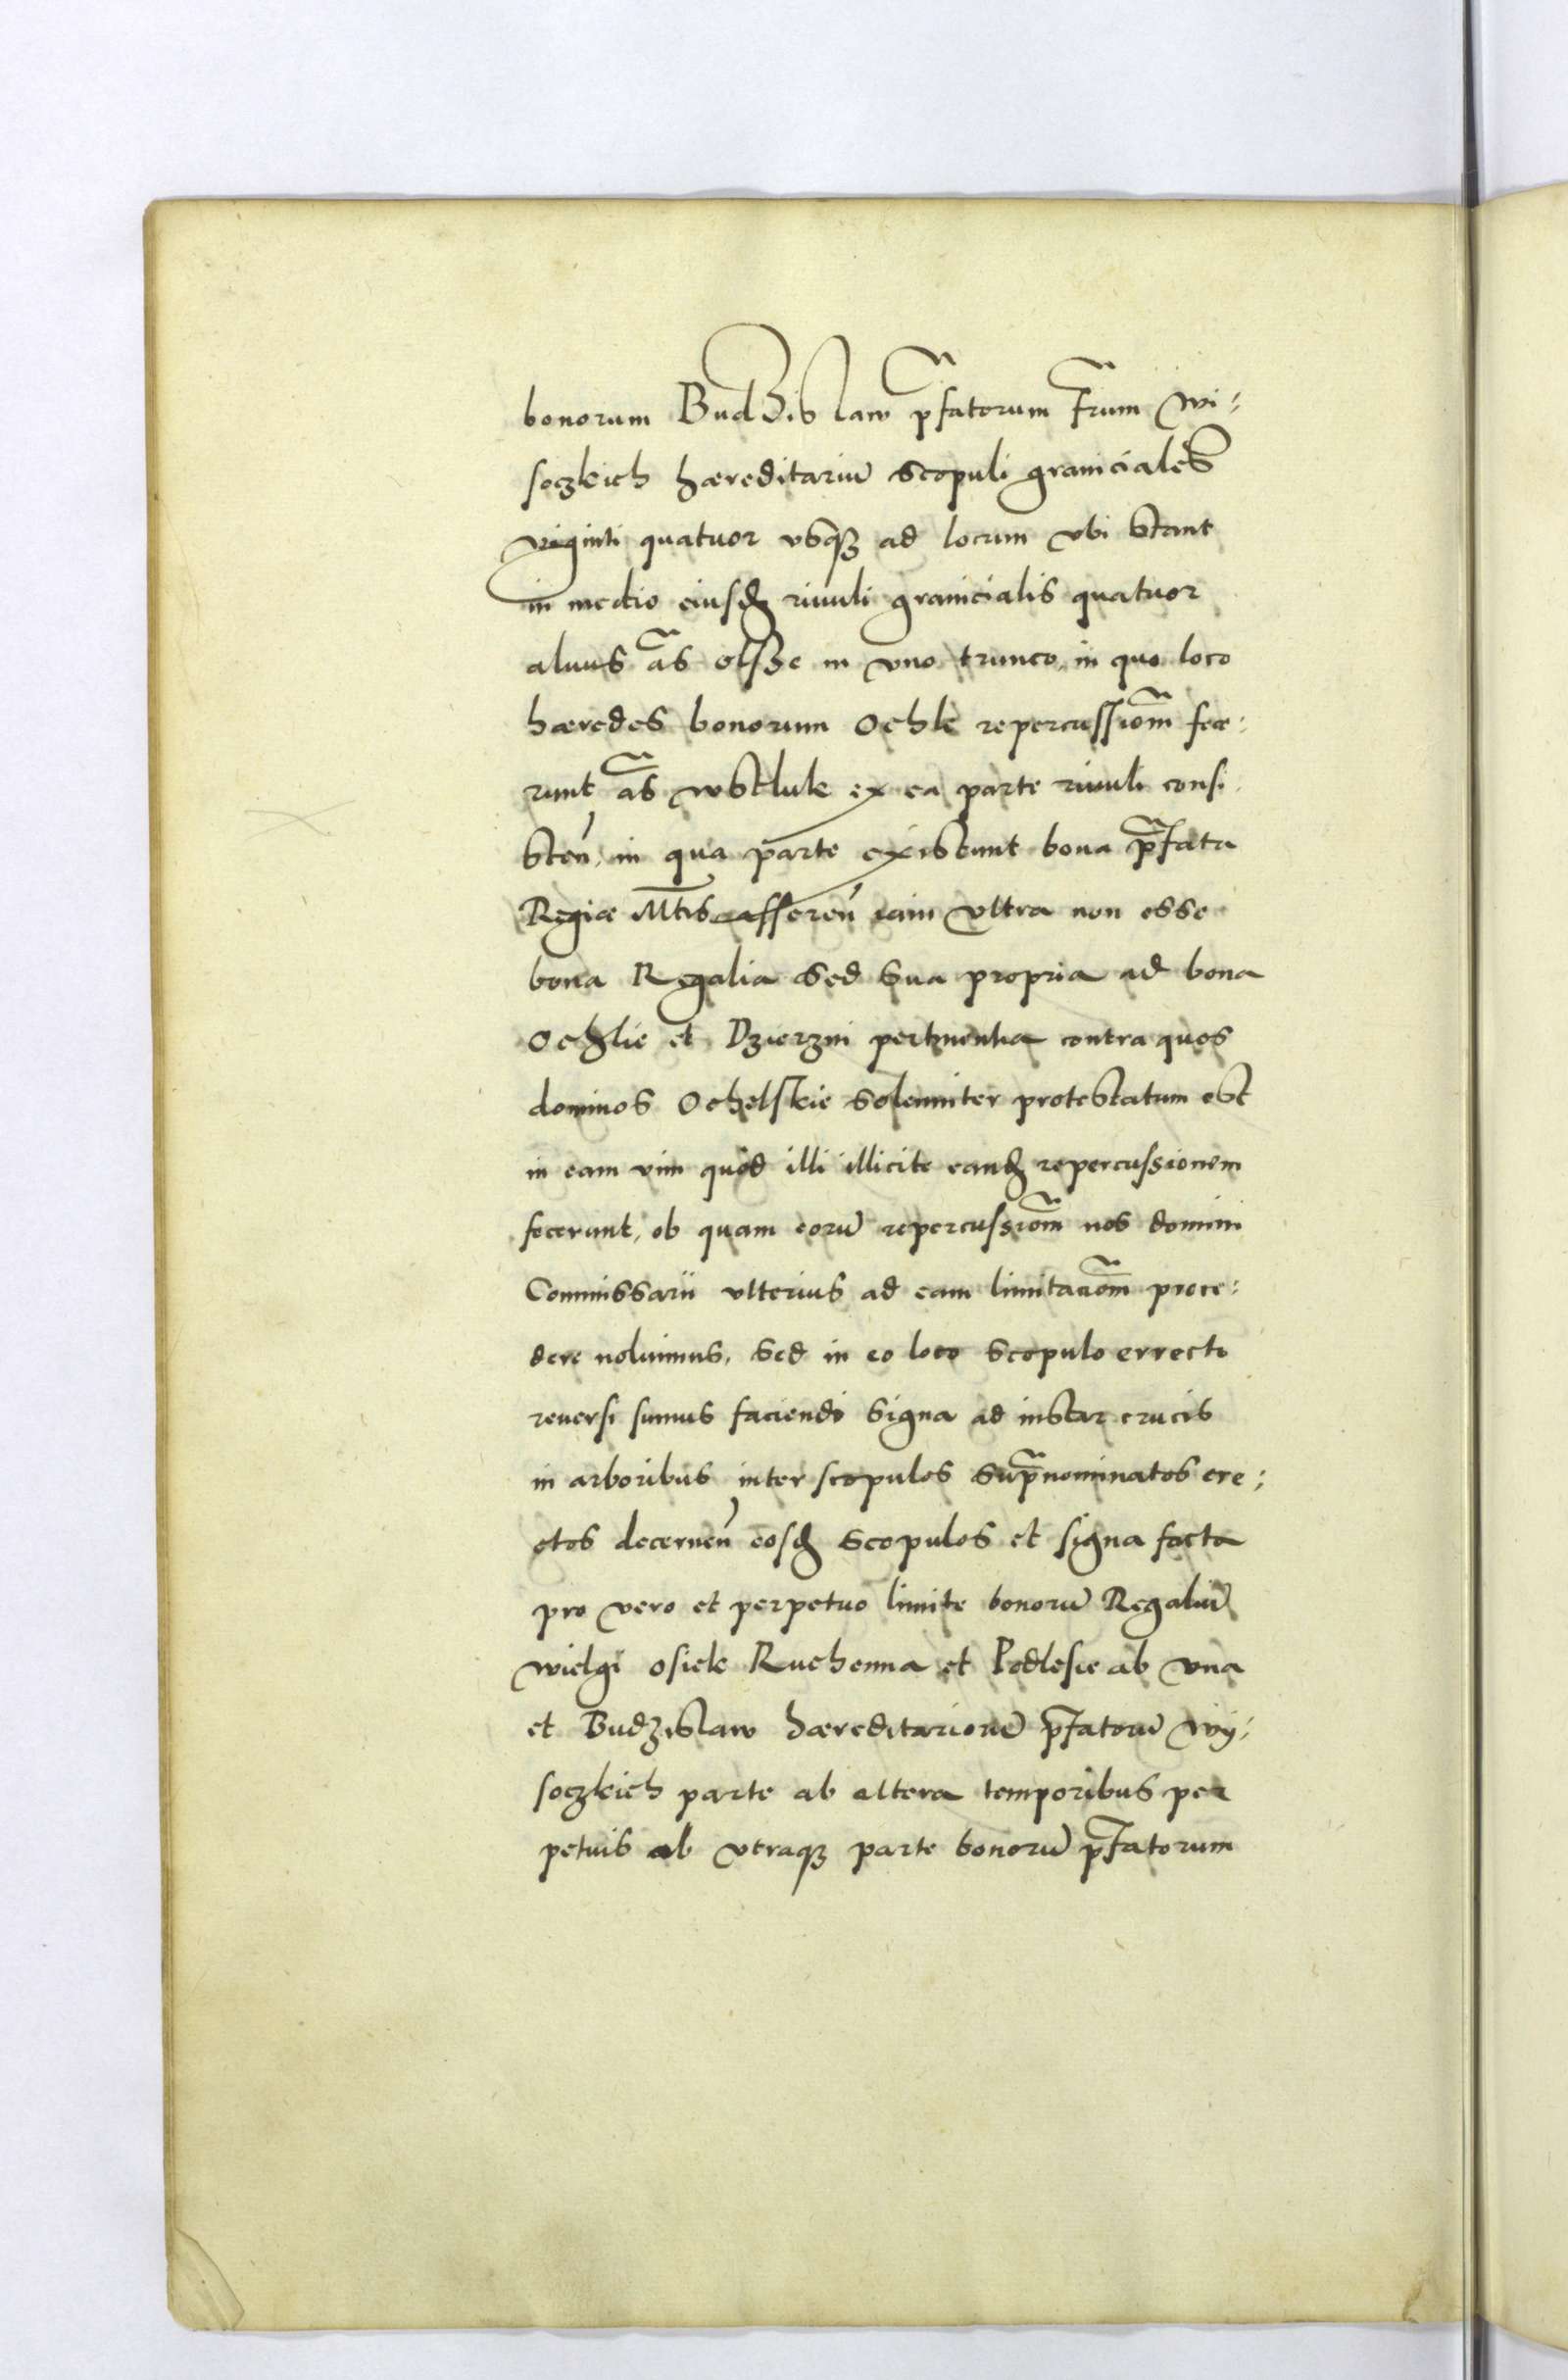 bonorum Budzislaw p̃fatorum Fr̃um Wi-
soczkich hæreditariũ scopuli graniciales
viginti quatuor vsqȝ ad locum vbi stant
in medio eiusdꝫ riuuli granicialis quatuor
alnus als̃ olsze in vno trunco, in quo loco
hæredes bonorum Ochle repercussiom̃ fece-
runt als̃ wstluk ex ea parte riuuli consi-
steñ, in qua parte existunt bona p̃fata
Regiæ Mtis̃ assereñ iam vltra non esse
bona Regalia sed sua propria ad bona
Ochlie et Dzierzni pertinentia contra quos
dominos Ochelskie solenniter protestatum est
in eam vim quod illi illicite eandꝫ repercussionem
fecerant, ob quam eorũ repercussiom̃ nos domini
Commissarii vlterius ad eam limitaciom̃ proce-
dere noluimus, sed in eo loco scopulo errecto
reuersi sumus faciendo signa ad instar crucis
in arboribus inter scopulos sup̃nominatos ere-
ctos decerneñ eosdꝫ scopulos et signa facta
pro vero et perpetuo limite bonorũ Regaliũ
wielgi osiek Ruchenna et Podlesie ab vna
et Budzislaw hæreditariorũ p̃fatorũ Wy-
soczkich parte ab altera temporibus per
petuis ab vtraqȝ parte bonorũ p̃fatorum